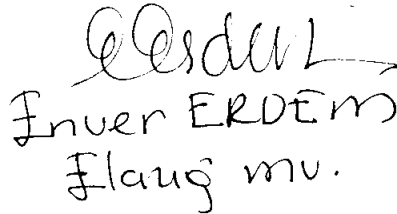 Enver ERDEM
Elazığ mv.